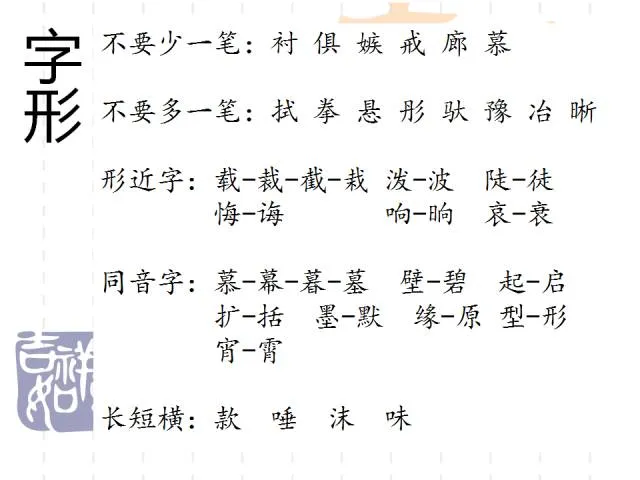 字形
不要少一笔：衬 俱 嫉 戒 廊 慕
不要多一笔：拭 拳 悬 彤 驮 豫 冶 晰
形近字：载-裁-截-栽 泼-波 陡-徒
悔-诲 响-晌 哀-衰
同音字：慕-幕-暮-墓 壁-碧 起-启
扩-括 墨-默 缘-原 型-形
宵-霄
长短横：款 唾 沫 味
吉祥如